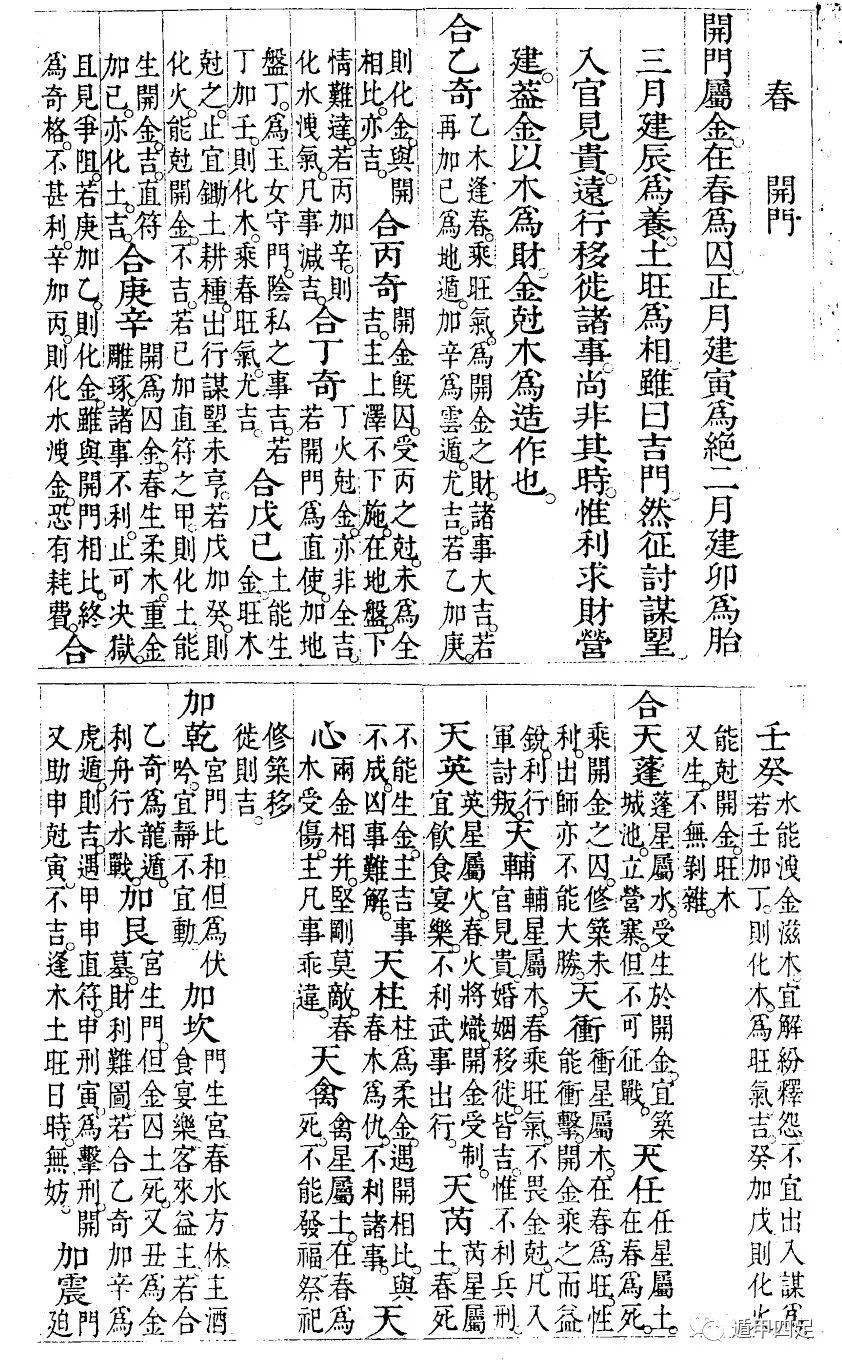 春　開門
開門屬金。在春爲囚。正月建寅爲絕二月建卯爲胎
三月建辰爲養。土旺爲相雖曰吉門。然征討謀望
入官見貴。遠行移徙諸事。尚非其時。惟利求財營
建。葢金以木爲財金尅木爲造作也。
合乙奇
乙木逢春。乘旺氣。爲開金之財。諸事大吉。若
再加己爲地遁。加辛爲雲遁。尤吉。若乙加庚。
則化金。與開
相比。亦吉。
合丙奇
開金旣囚。受丙之尅。未爲全
吉。主上澤不下施。在地盤下
情難達。若丙加辛。則
化水洩氣。凡事減吉。
合丁奇
丁火尅金。亦非全吉。
若開門爲直使。加地
盤丁。爲玉女守門。陰私之事吉。若
丁加壬。則化木。乘春旺氣。尤吉。
合戊己
土能生
金。旺木
尅之。止宜鋤土耕種。出行謀望未亨。若戊加癸。則
化火。能尅開金。不吉。若己加直符之甲。則化土能
生開金。吉。直符
加己。亦化土。吉。
合庚辛
開爲囚金。春生柔木。重金
雕琢。諸事不利。止可决獄。
且見爭阻。若庚加乙。則化金。雖與開門相比。終
爲奇格。不甚利。辛加丙。則化水洩金。恐有耗費。
合
壬癸
水能洩金滋木。宜解紛釋怨。不宜出入謀爲
若壬加丁。則化木。爲旺氣吉。癸加戊則化火
能尅開金。旺木
又生。不無剝雜。
合天蓬
蓬星屬水。受生於開金。宜築
城池。立營寨。但不可征戰。
天任
任星屬土。
在春爲死。
乘開金之囚。修築未
利。出師亦不能大勝。
天衝
衝星屬木。在春爲旺。性
能衝擊。開金乘之而益
銳。利行
軍討叛。
天輔
輔星屬木。春乘旺氣。不畏金尅。凡入
官見貴。婚姻移徙。皆吉。惟不利兵刑。
天英
英星屬火。春火將熾。開金受制。
宜飲食宴樂。不利武事出行。
天芮
芮星屬
土。春死
不能生金。主吉事
不成。凶事難解。
天柱
柱爲柔金。遇開相比。與
春木爲仇。不利諸事。
天
心
兩金相并。堅剛莫敵。春
木受傷。主凡事乖違。
天禽
禽星屬土。在春爲
死。不能發福。祭祀
修築移
徙則吉。
加乾
宮門比和但爲伏
吟。宜靜不宜動。
加坎
門生宮。春水方休。主酒
食宴樂。客來益主。若合
乙奇爲龍遁。
利舟行水戰。
加艮
宮生門。但金囚土死。又丑爲金
墓。財利難圖。若合乙奇加辛爲
虎遁。則吉。遇甲申直符。申刑寅。爲擊刑。開
又助申尅寅。不吉。逢木土旺日時。無妨。
加震
門
迫
遁甲四足